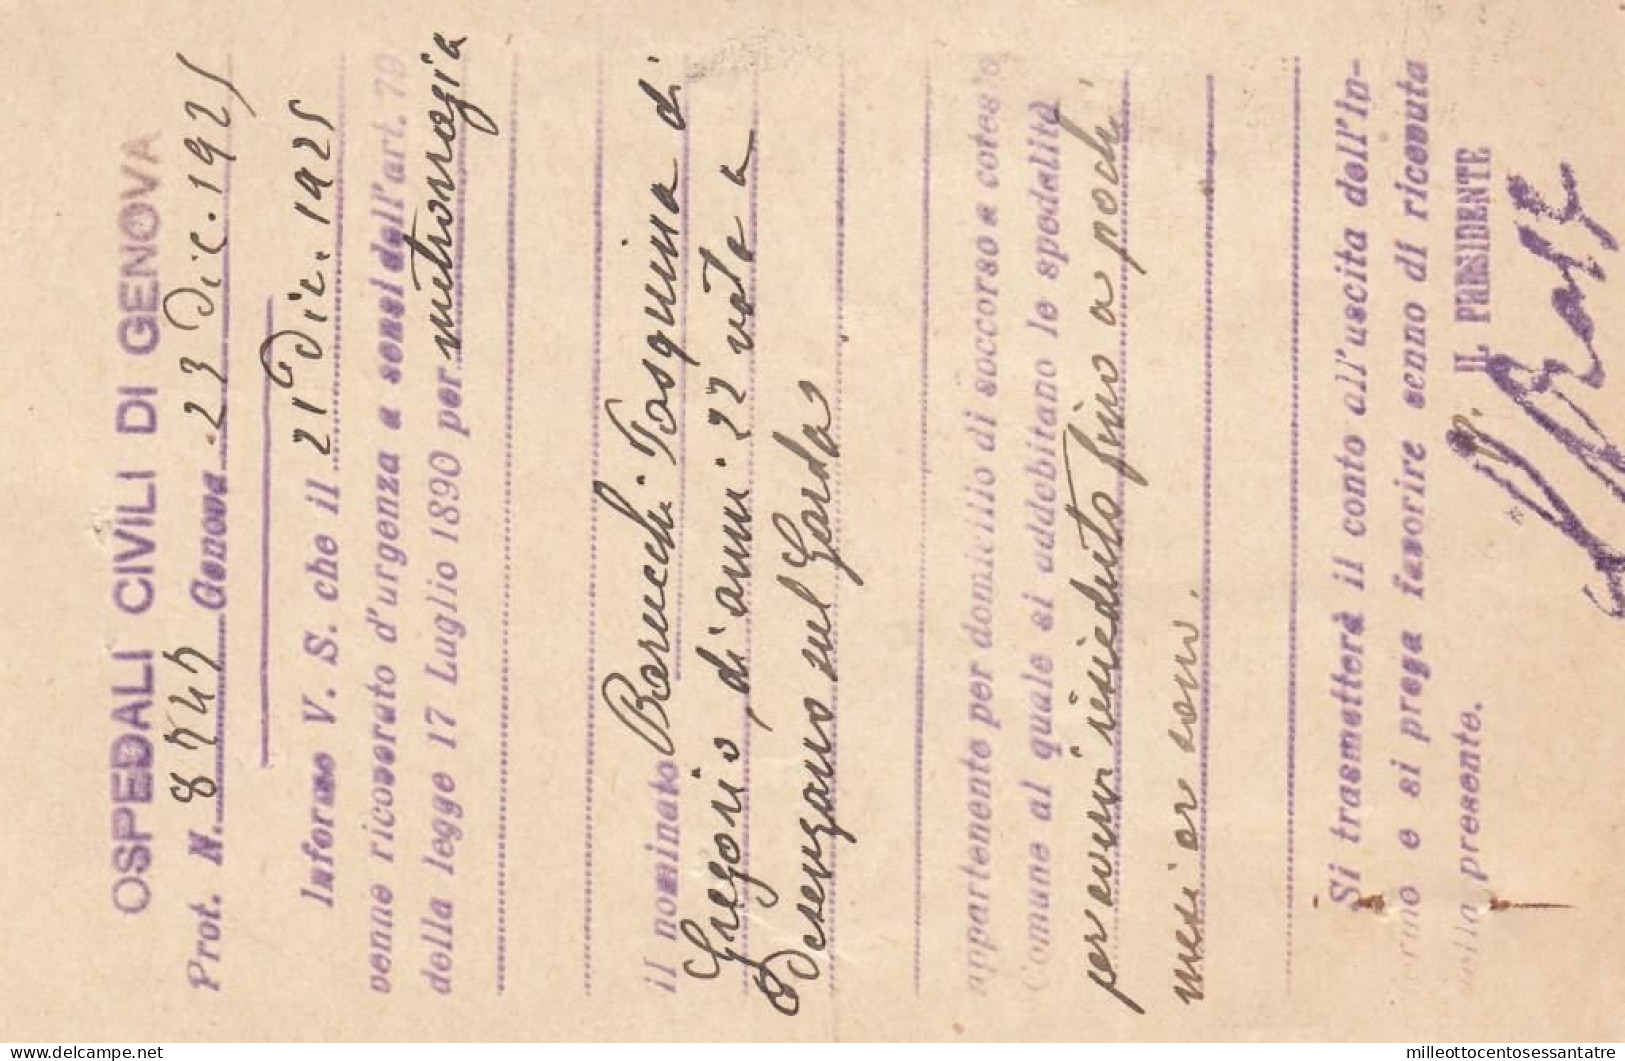 OSPEDALI CIVILI DI GENOVA
Prot. N. 8747 Genova 23 Dic. 1925
Informo V. S. che il 21 Dic. 1925
venne ricoverato d'urgenza a sensi dell'art. 79
della legge 17 Luglio 1890 per metrorragia
il nominato Barucchi Pasquina di
Gregorio, di anni 22 nata a
Desenzano sul Garda
appartenente per domicilio di soccorso a cotes'o
Comune al quale si addebitano le spedalità
per avervi risieduto fino a pochi
mesi or sono.
Si trasmetterà il conto all'uscita dell'In-
fermo e si prega favorire cenno di ricevuta
della presente.
IL PRESIDENTE
milleottocentosessantatre